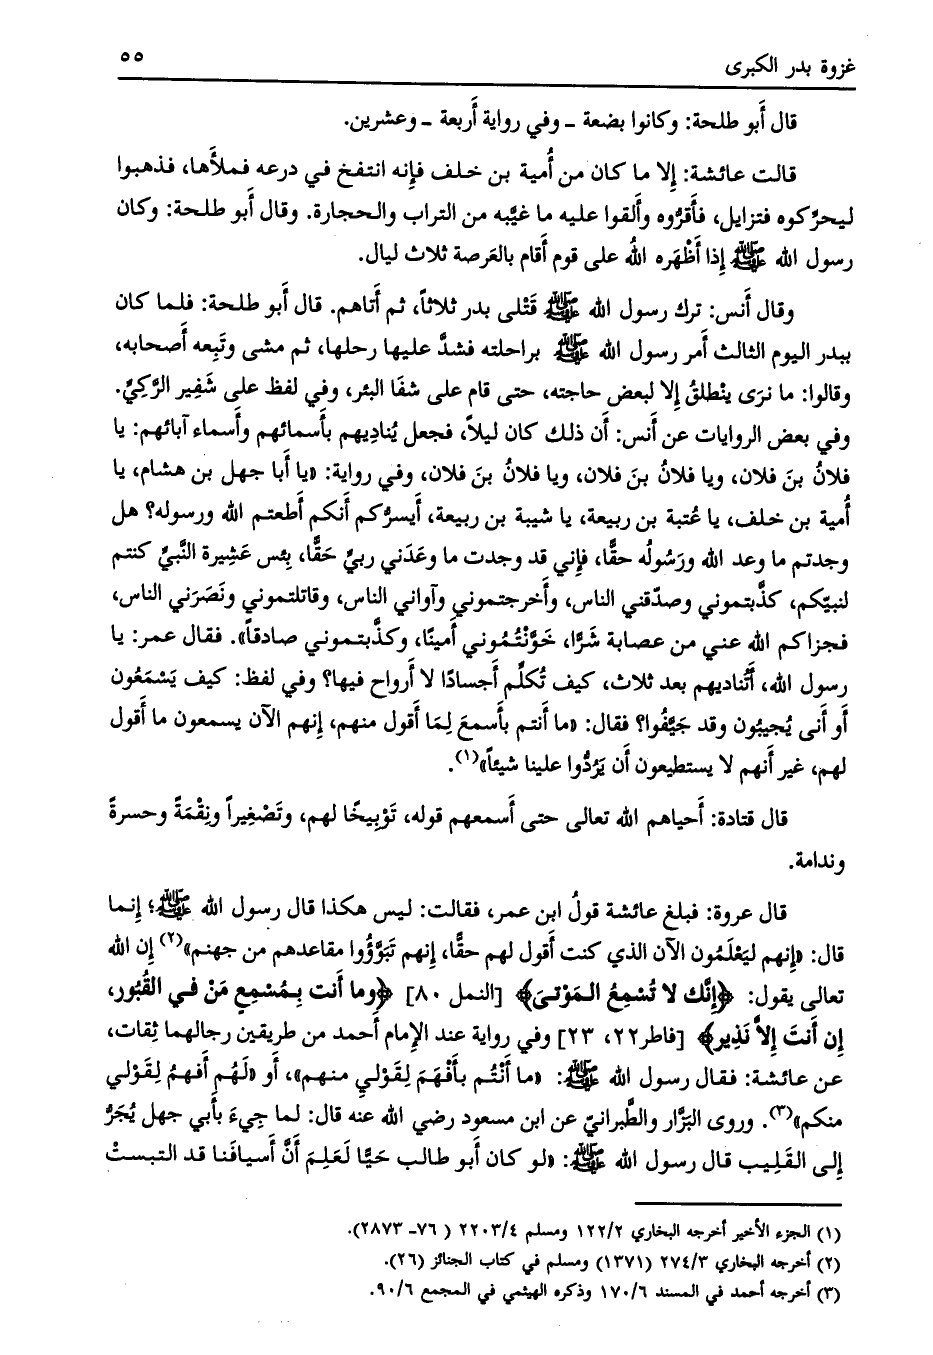 غزوة بدر الكبرى
٥٥
قال أَبو طلحة: وكانوا بضعة ـ وفي رواية أَربعة ـ وعشرين.
قالت عائشة: إِلا ما كان من أُمية بن خلف فإِنه انتفخ في درعه فملأَها، فذهبوا
ليحرِّكوه فتزايل، فأَقرُّوه وأَلقوا عليه ما غيَّبه من التراب والحجارة. وقال أَبو طلحة: وكان
رسول الله ﷺ إِذا أَظْهَره اللهُ على قوم أَقام بالعَرصة ثلاث ليال.
وقال أَنس: ترك رسول الله ﷺ قَتْلى بدر ثلاثاً، ثم أَتاهم. قال أَبو طلحة: فلما كان
ببدر اليوم الثالث أَمر رسول الله ﷺ براحلته فشدَّ عليها رحلها، ثم مشى وتَبِعه أَصحابه،
وقالوا: ما نرَى ينْطلقُ إِلا لبعض حاجته، حتى قام على شفَا البئر، وفي لفظ على شَفِير الرَّكِيِّ.
وفي بعض الروايات عن أَنس: أَن ذلك كان ليلاً، فجعل يُنادِيهم بأَسمائهم وأَسماء آبائهم: يا
فلانُ بنَ فلان، ويا فلانُ بنَ فلان، ويا فلانُ بنَ فلان، وفي رواية: «يا أَبا جهل بن هشام، يا
أُمية بن خلف، يا عُتبة بن ربيعة، يا شيبة بن ربيعة، أَيسرُّكم أَنكم أَطعتم الله ورسوله؟ هل
وجدتم ما وعد الله ورَسُولُه حقًّا، فإِني قد وجدت ما وعَدَني ربيِّ حَقًّا، بِئس عَشِيرة النَّبيِّ كنتم
لنبيِّكم، كذَّبتموني وصدّقني الناس، وأَخرجتموني وآواني الناس، وقاتلتموني ونَصَرَني الناس،
فجزاكم الله عني من عصابة شَرًّا، خَوَّنْتُموني أَمينًا، وكذَّبتموني صادقاً». فقال عمر: يا
رسول الله، أَتُناديهم بعد ثلاث، كيف تُكلِّم أَجسادًا لا أَرواح فيها؟ وفي لفظ: كيف يَسْمَعُون
أَو أَنى يُجيبُون وقد جَيَّفُوا؟ فقال: «ما أَنتم بأَسمعَ لِمَا أَقول منهم، إِنهم الآن يسمعون ما أَقول
لهم، غير أَنهم لا يستطيعون أَن يَرُدُّوا علينا شيئاً»(١).
قال قتادة: أَحياهم الله تعالى حتى أَسمعهم قوله، تَوْبِيخًا لهم، وتَصْغِيراً ونِقْمَةً وحسرةً
وندامة.
قال عروة: فبلغ عائشة قولُ ابن عمر، فقالت: ليس هكذا قال رسول الله ﷺ؛ إِنما
قال: «إِنهم ليَعْلَمُون الآن الذي كنت أَقول لهم حقًّا، إِنهم تَبَوَّؤُوا مقاعدهم من جهنم»(٢) إِن الله
تعالى يقول: ﴿إِنَّك لا تُسْمِعُ الـمَوْتىَ﴾ [النمل ٨٠] ﴿وما أَنت بِـمُسْمِعٍ مَنْ في القُبُور،
إِن أَنتَ إِلاَّ نَذِير﴾ [فاطر٢٢، ٢٣] وفي رواية عند الإِمام أَحمد من طريقين رجالهما ثِقات،
عن عائشة: فقال رسول الله ﷺ: «ما أَنْتُم بأَفْهَمَ لِقَوْلي منهم»، أَو «لَهُم أَفهمُ لِقَوْلي
منكم»(٣). وروى البَزَّار والطَّبرانيّ عن ابن مسعود رضي الله عنه قال: لما جِيءَ بأَبي جهل يُجَرُّ
إِلى القَلِيب قال رسول الله ﷺ: «لو كان أَبو طالب حَيًّا لَعَلِمَ أَنَّ أَسيافَنا قد التبستْ
(١) الجزء الأخير أخرجه البخاري ١٢٢/٢ ومسلم ٢٢٠٣/٤ ( ٧٦ـ ٢٨٧٣).
(٢) أخرجه البخاري ٢٧٤/٣ (١٣٧١) ومسلم في كتاب الجنائز (٢٦).
(٣) أخرجه أحمد في المسند ١٧٠/٦ وذكره الهيثمي في المجمع ٩٠/٦.